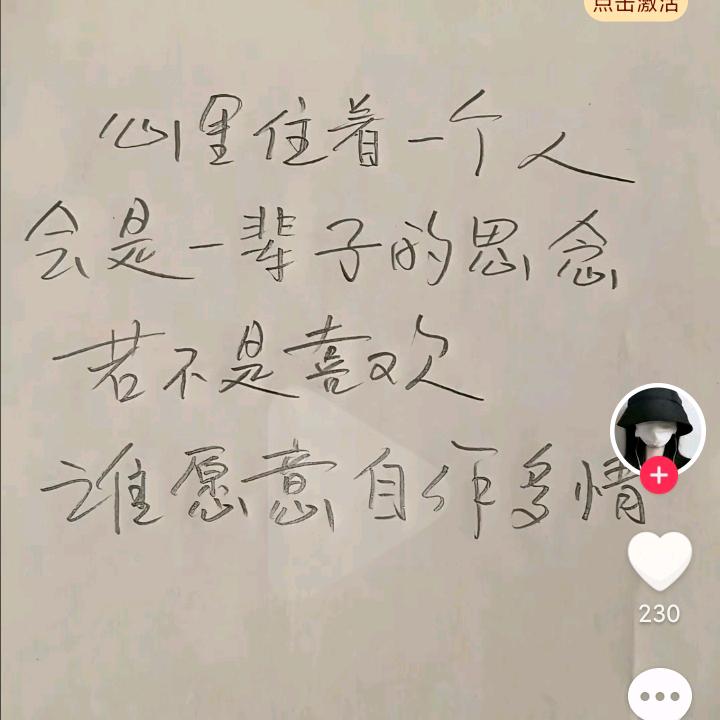 点击激活
心里住着一个人
会是一辈子的思念
若不是喜欢
谁愿意自作多情
230